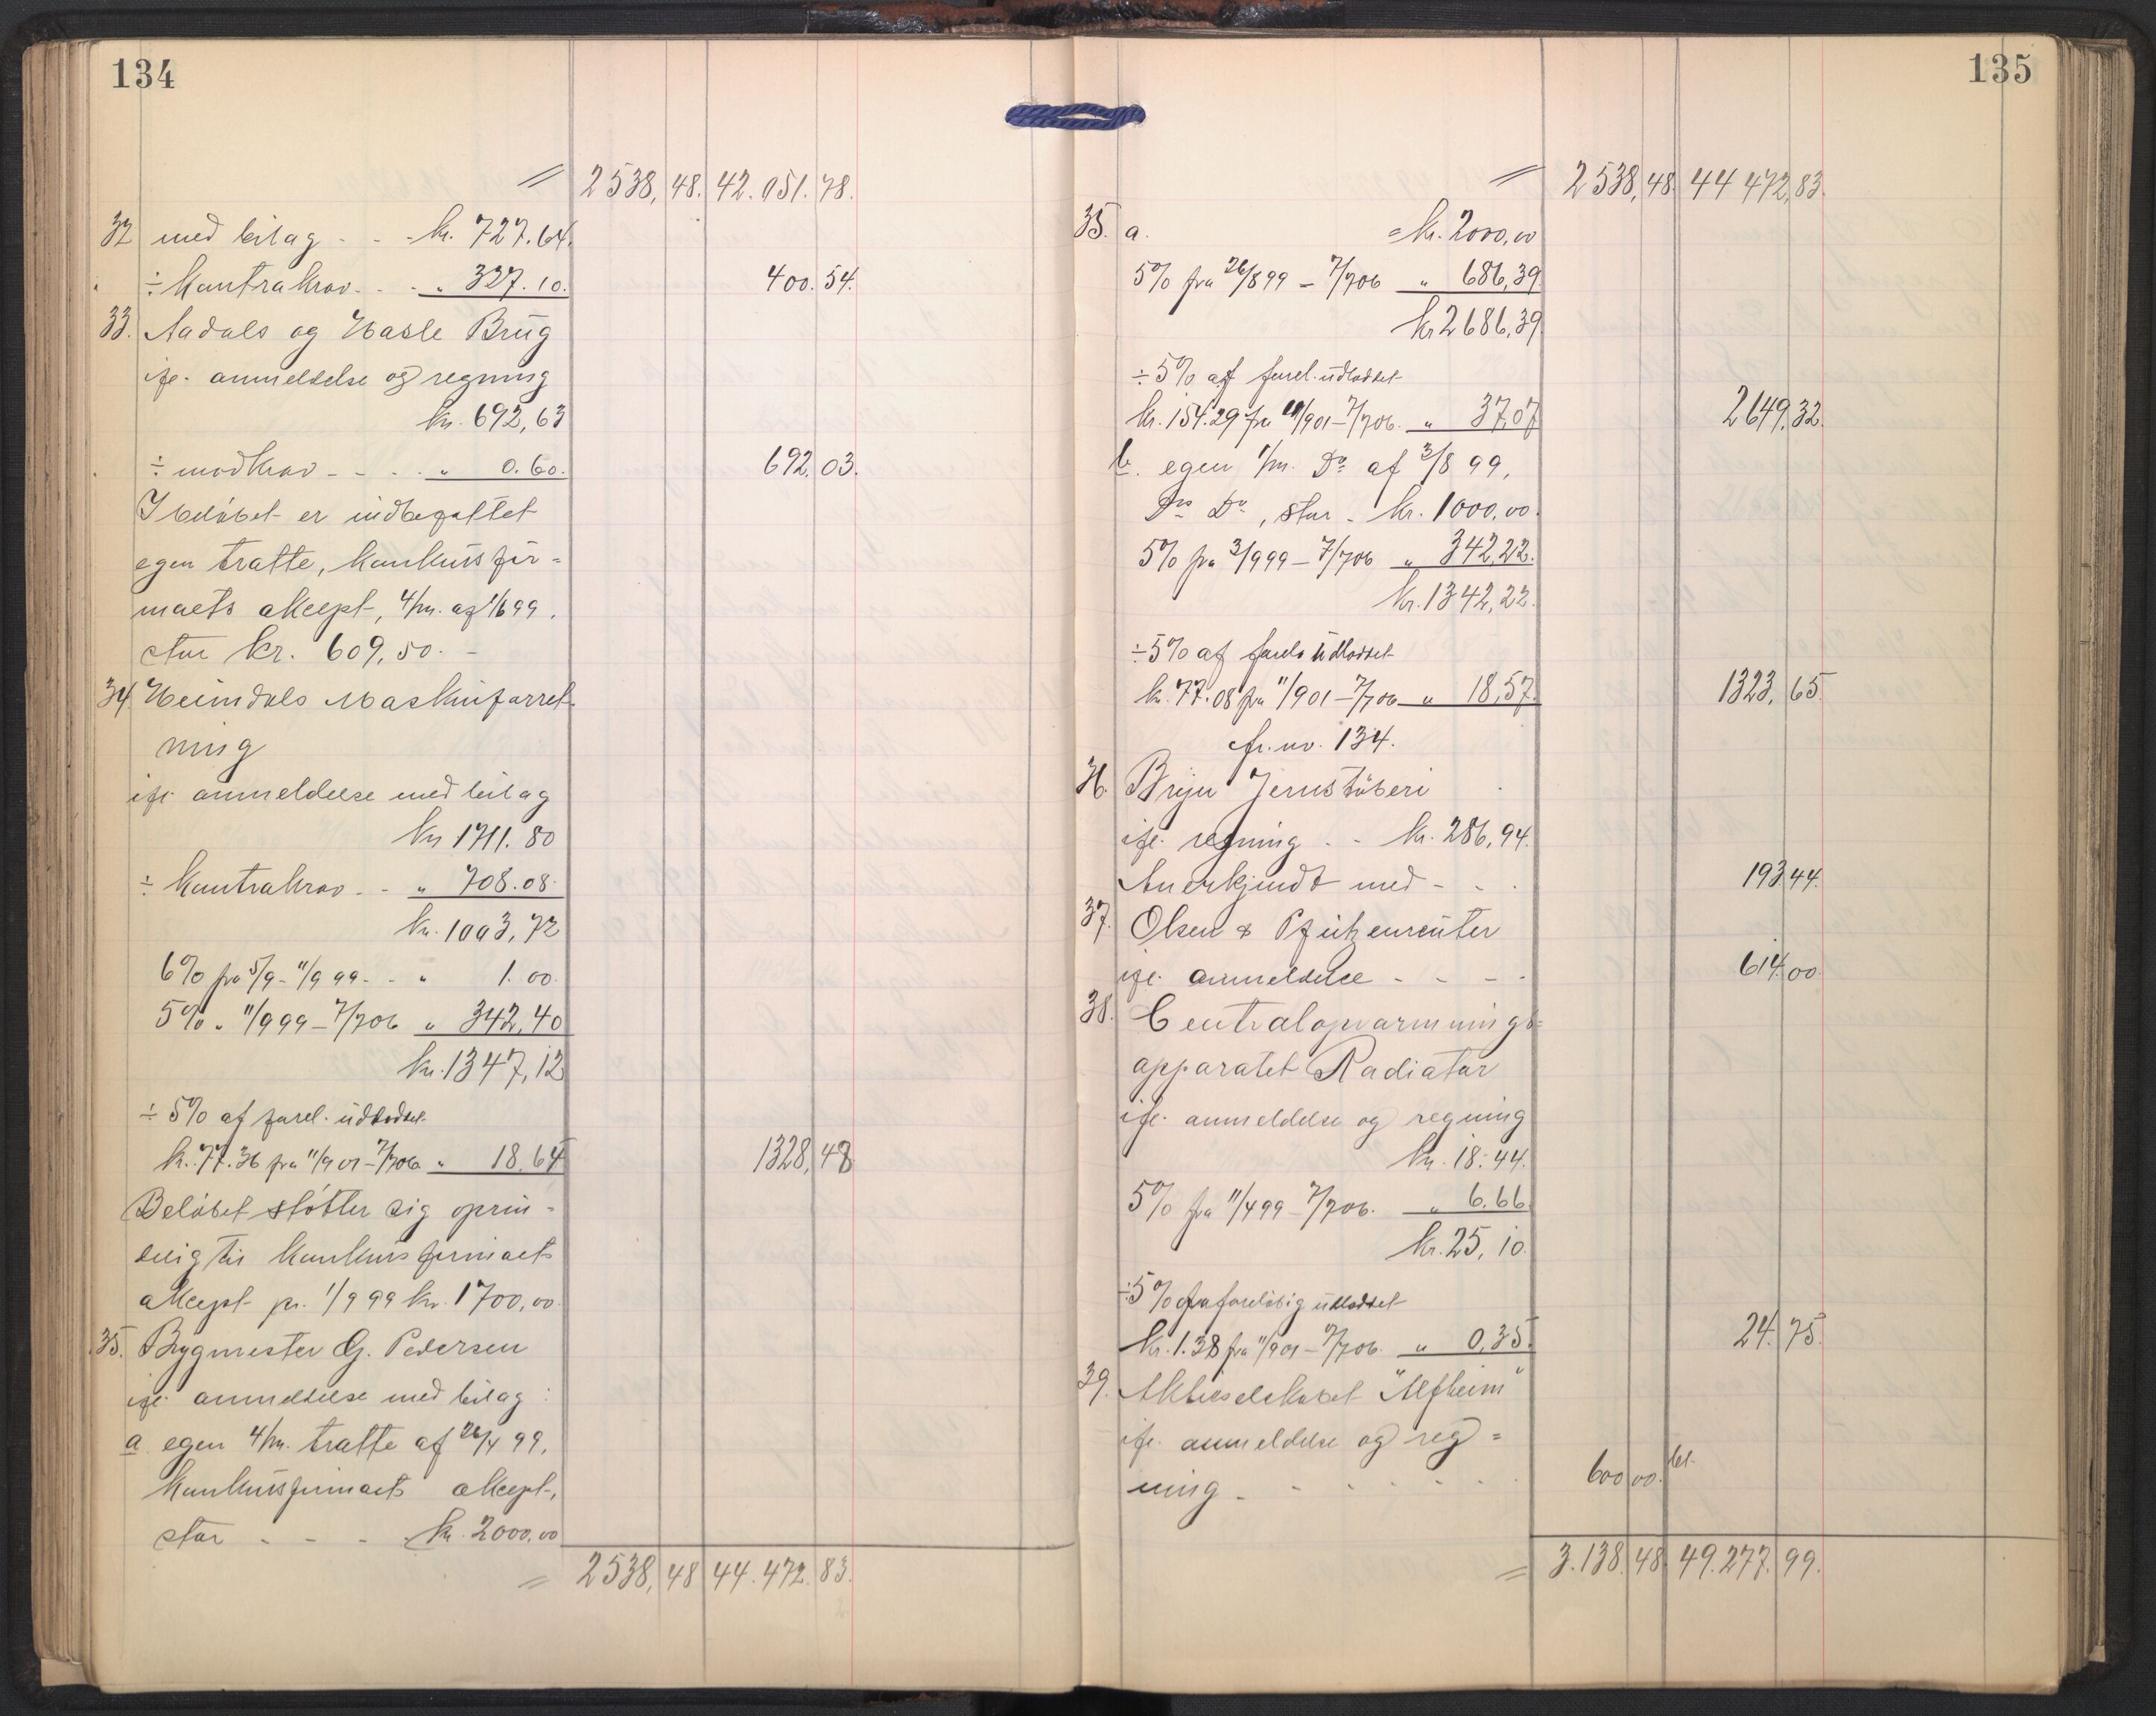 134
= 2538,48. 42.051.78.
32 med bilag - - - kr. 727.64.
÷ Kontrakrav - - - " 327.10. 400.54.
33. Aadals og Hasle Brug
ifl. anmeldelse og regning
kr. 692,63
÷ modkrav - - - - " 0.60. 692.03.
I beløbet er indbefattet
egen tratte, konkursfir=
maets akcept, 4/m. af 1/6 99.
stor kr. 609,50. -
34. Heimdals Maskinforret-
ning
ifl. anmeldelse med bilag
kr. 1711.80
÷ Kontrakrav - - " 708.08.
kr. 1003,72
6% fra 5/9 - 11/9 99 - - " 1.00.
5% " 11/9 99 - 7/7 06 " 342,40
kr. 1347,12
÷ 5% af forel. udloddet
kr. 77.36 fra 11/9 01 - 7/7 06 " 18.64 1328,48
Beløbet støtter sig oprin=
delig til konkursfirmaets
akcept pr. 1/9 99 kr. 1700,00.
35. Bygmester G. Pedersen
ifl. anmeldelse med bilag:
a. egen 4/m. tratte af 26/4 99,
konkursfirmaets akcept,
stor - - - kr. 2000,00
= 2538,48 44.472.83.
135
= 2538,48. 44 472,83.
35. a. = kr. 2000,00
5% fra 26/8 99 - 7/7 06 " 686,39.
kr 2686,39.
÷ 5% af forel. udloddet
kr. 154.29 fra 11/9 01 - 7/7 06. " 37,07 2649,32.
b. egen 1/m. Do af 3/8 99,
Ds Do, stor - kr. 1000,00.
5% fra 3/9 99 - 7/7 06 " 342,22.
kr. 1342,22.
÷ 5% af forelø udloddet
kr. 77.08 fra 11/9 01 - 7/7 06 " 18,57. 1323,65.
cfr. no. 134.
36. Bryn Jernstøberi
ifl. regning - - kr. 286,94.
Anerkjendt med - - - 193.44.
37. Olsen & Pfützenreuter
ifl. anmeldelse - - - - 614.00.
38. Centralopvarmnings=
apparatet Radiator
ifl. anmeldelse og regning
kr. 18.44.
5% fra 11/4 99 - 7/7 06. " 6.66.
kr. 25,10.
÷ 5% foreløbig udloddet
kr. 1.38 fra 11/9 01 - 7/7 06. " 0,35. 24.75.
39. Aktieselskabet "Alfheim"
ifl. anmeldelse og reg=
ning - - - - - - 600 00. bet.
= 3.138.48. 49.277.99.